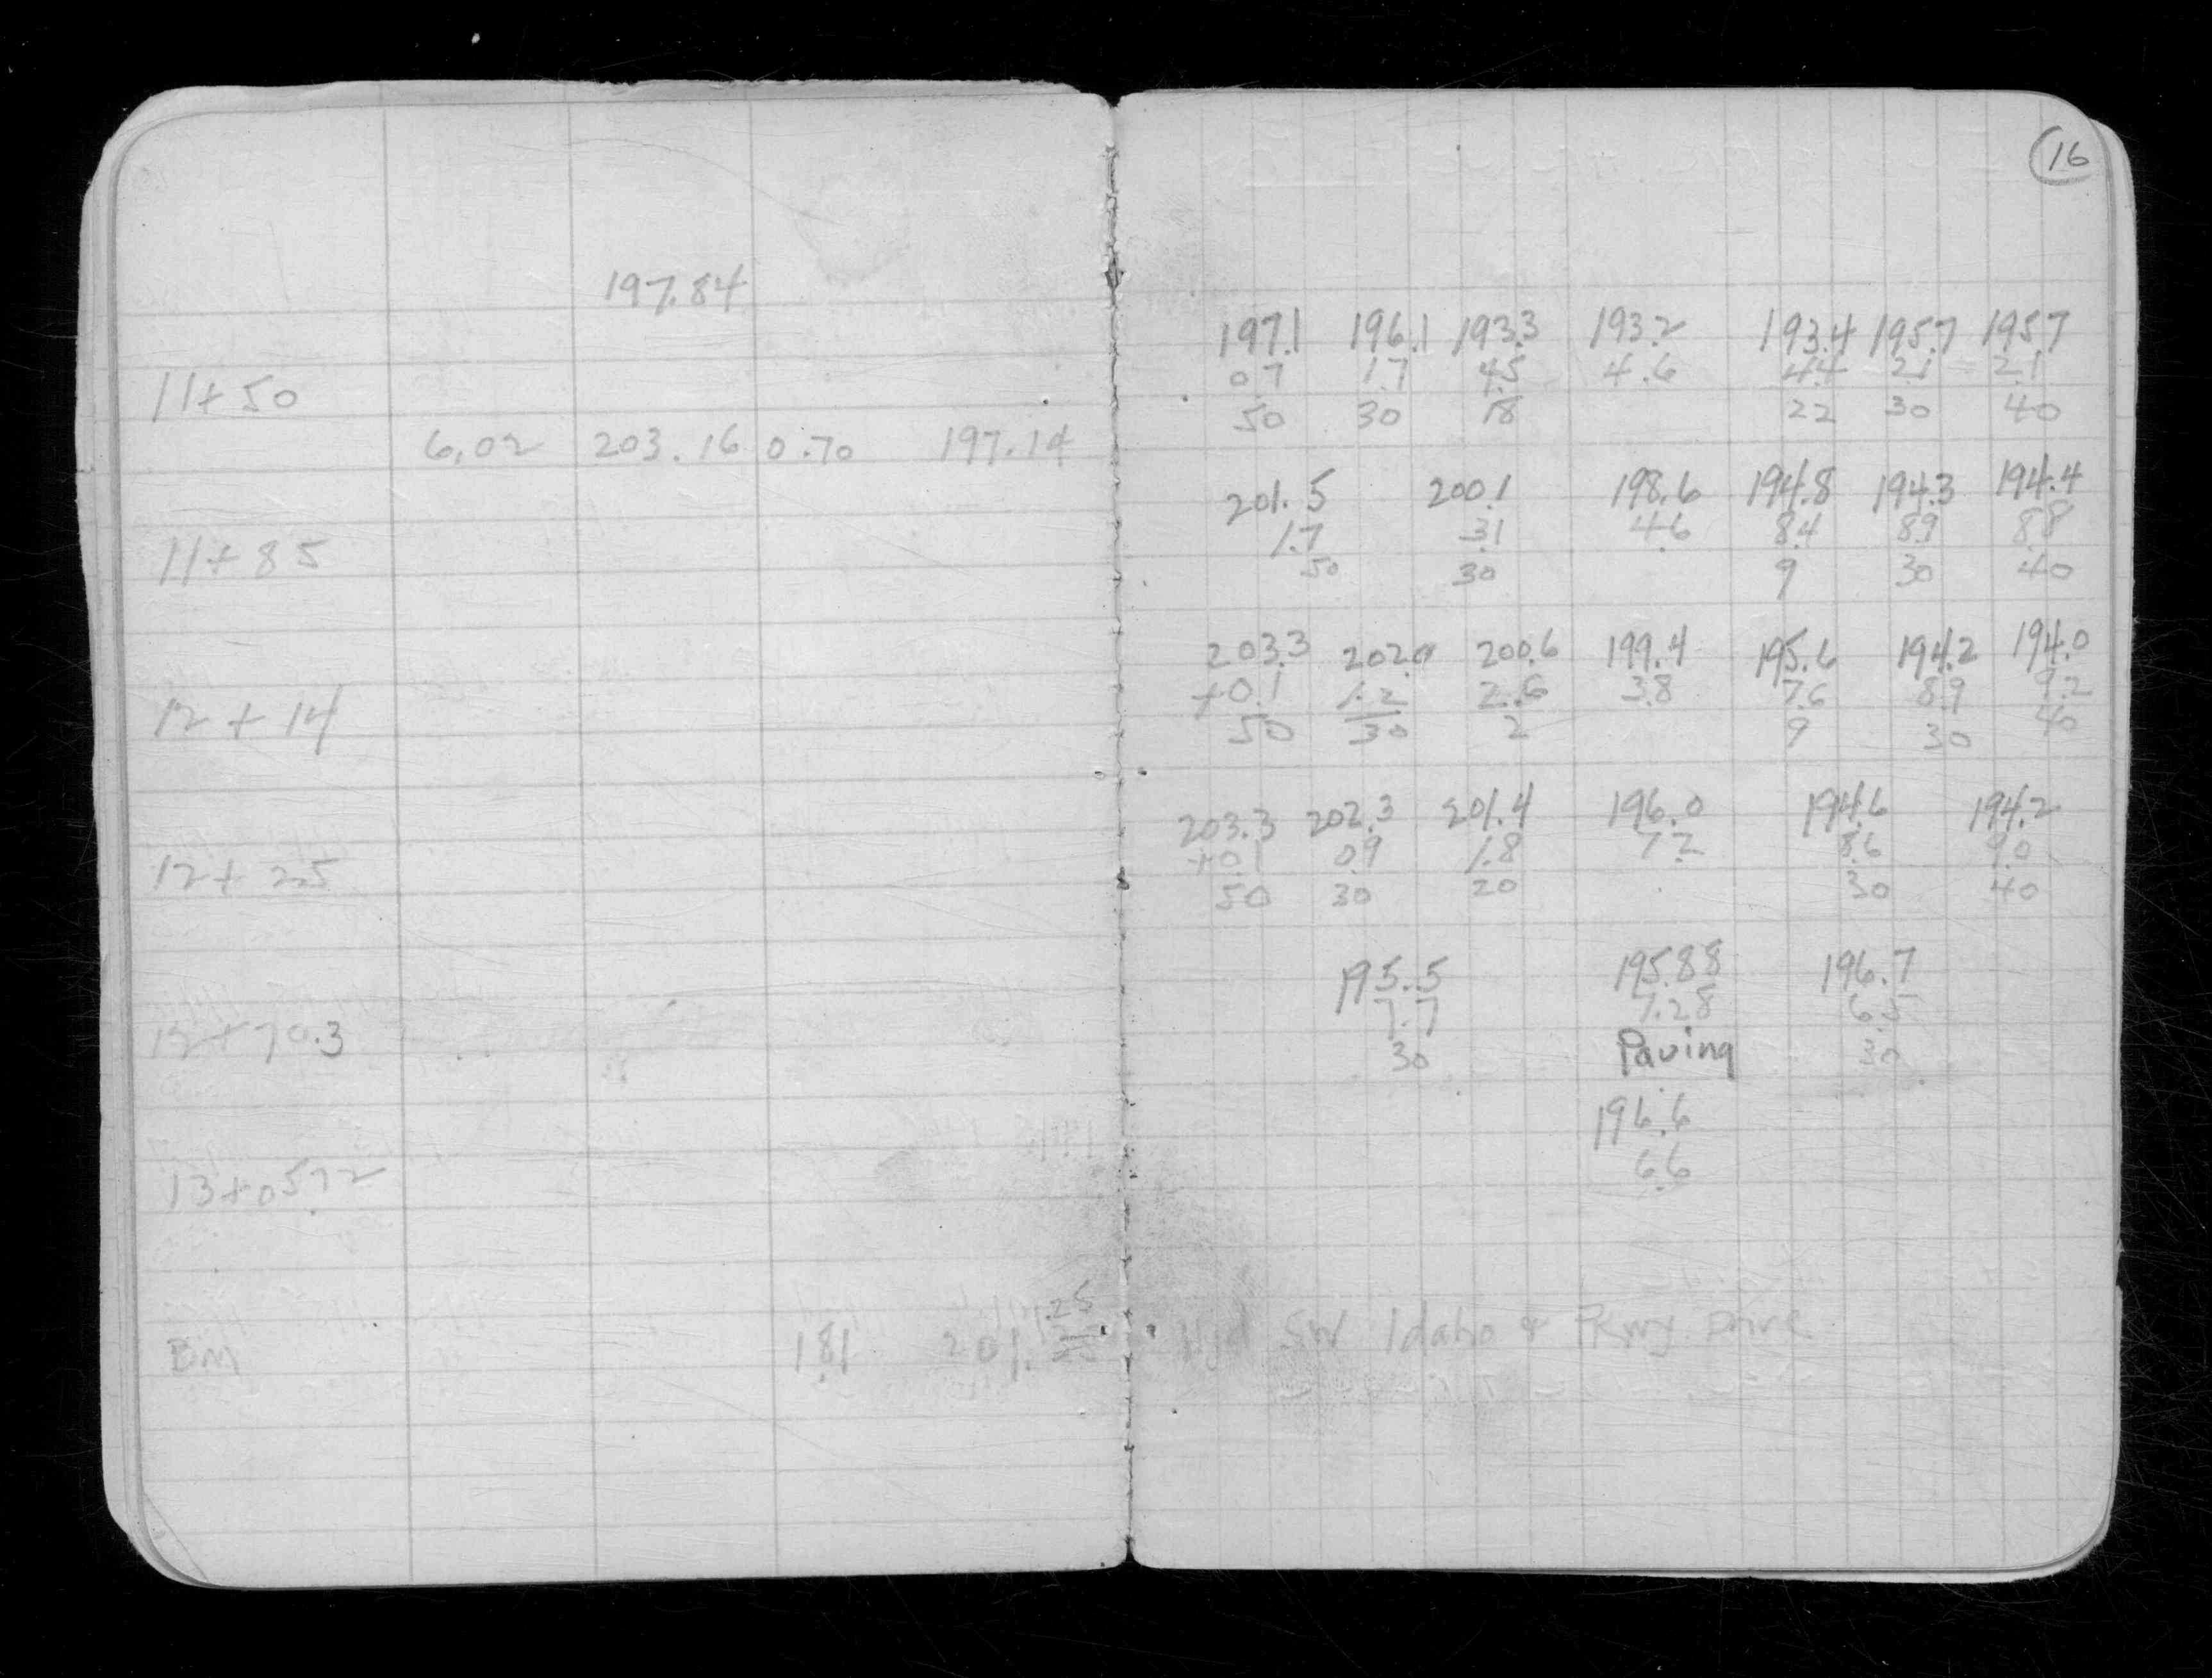 16
197.84
197.1 196.1 193.3 193.2 193.4 195.7 195.7
11+50 0.7 1.7 4.5 4.6 4.4 2.1 2.1
50 30 18 22 30 40
6.02 203.16 0.70 197.14
201.5 200.1 198.6 194.8 194.3 194.4
11+85 1.7 3.1 4.6 8.4 8.9 8.8
50 30 9 30 40
203.3 202.0 200.6 199.4 195.6 194.2 194.0
12+14 +0.1 1.2 2.6 3.8 7.6 8.9 9.2
50 30 2 9 30 40
203.3 202.3 201.4 196.0 194.6 194.2
12+25 +0.1 0.9 1.8 7.2 8.6 9.0
50 30 20 30 40
195.5 195.88 196.7
12+70.3 7.7 7.28 6.5
30 Paving 30
196.6
13+05.72 6.6
.25
BM 1.81 201. SW Idaho & Pkwy Drive